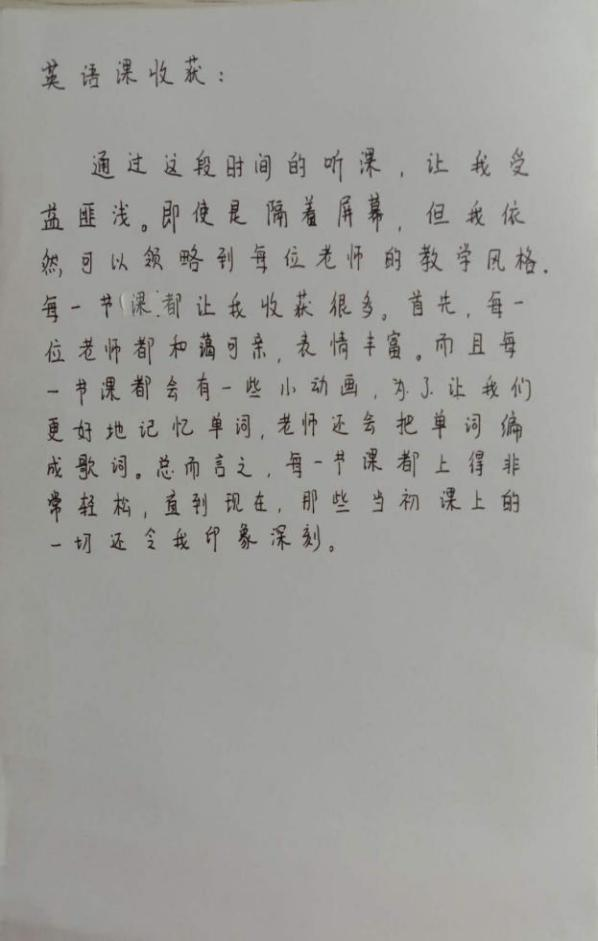 英语课收获：
通过这段时间的听课，让我受
益匪浅。即使是隔着屏幕，但我依
然可以领略到每位老师的教学风格.
每一节课都让我收获很多。首先，每一
位老师都和蔼可亲，表情丰富。而且每
一节课都会有一些小动画，为了让我们
更好地记忆单词，老师还会把单词编
成歌词。总而言之，每一节课都上得非
常轻松，直到现在，那些当初课上的
一切还令我印象深刻。